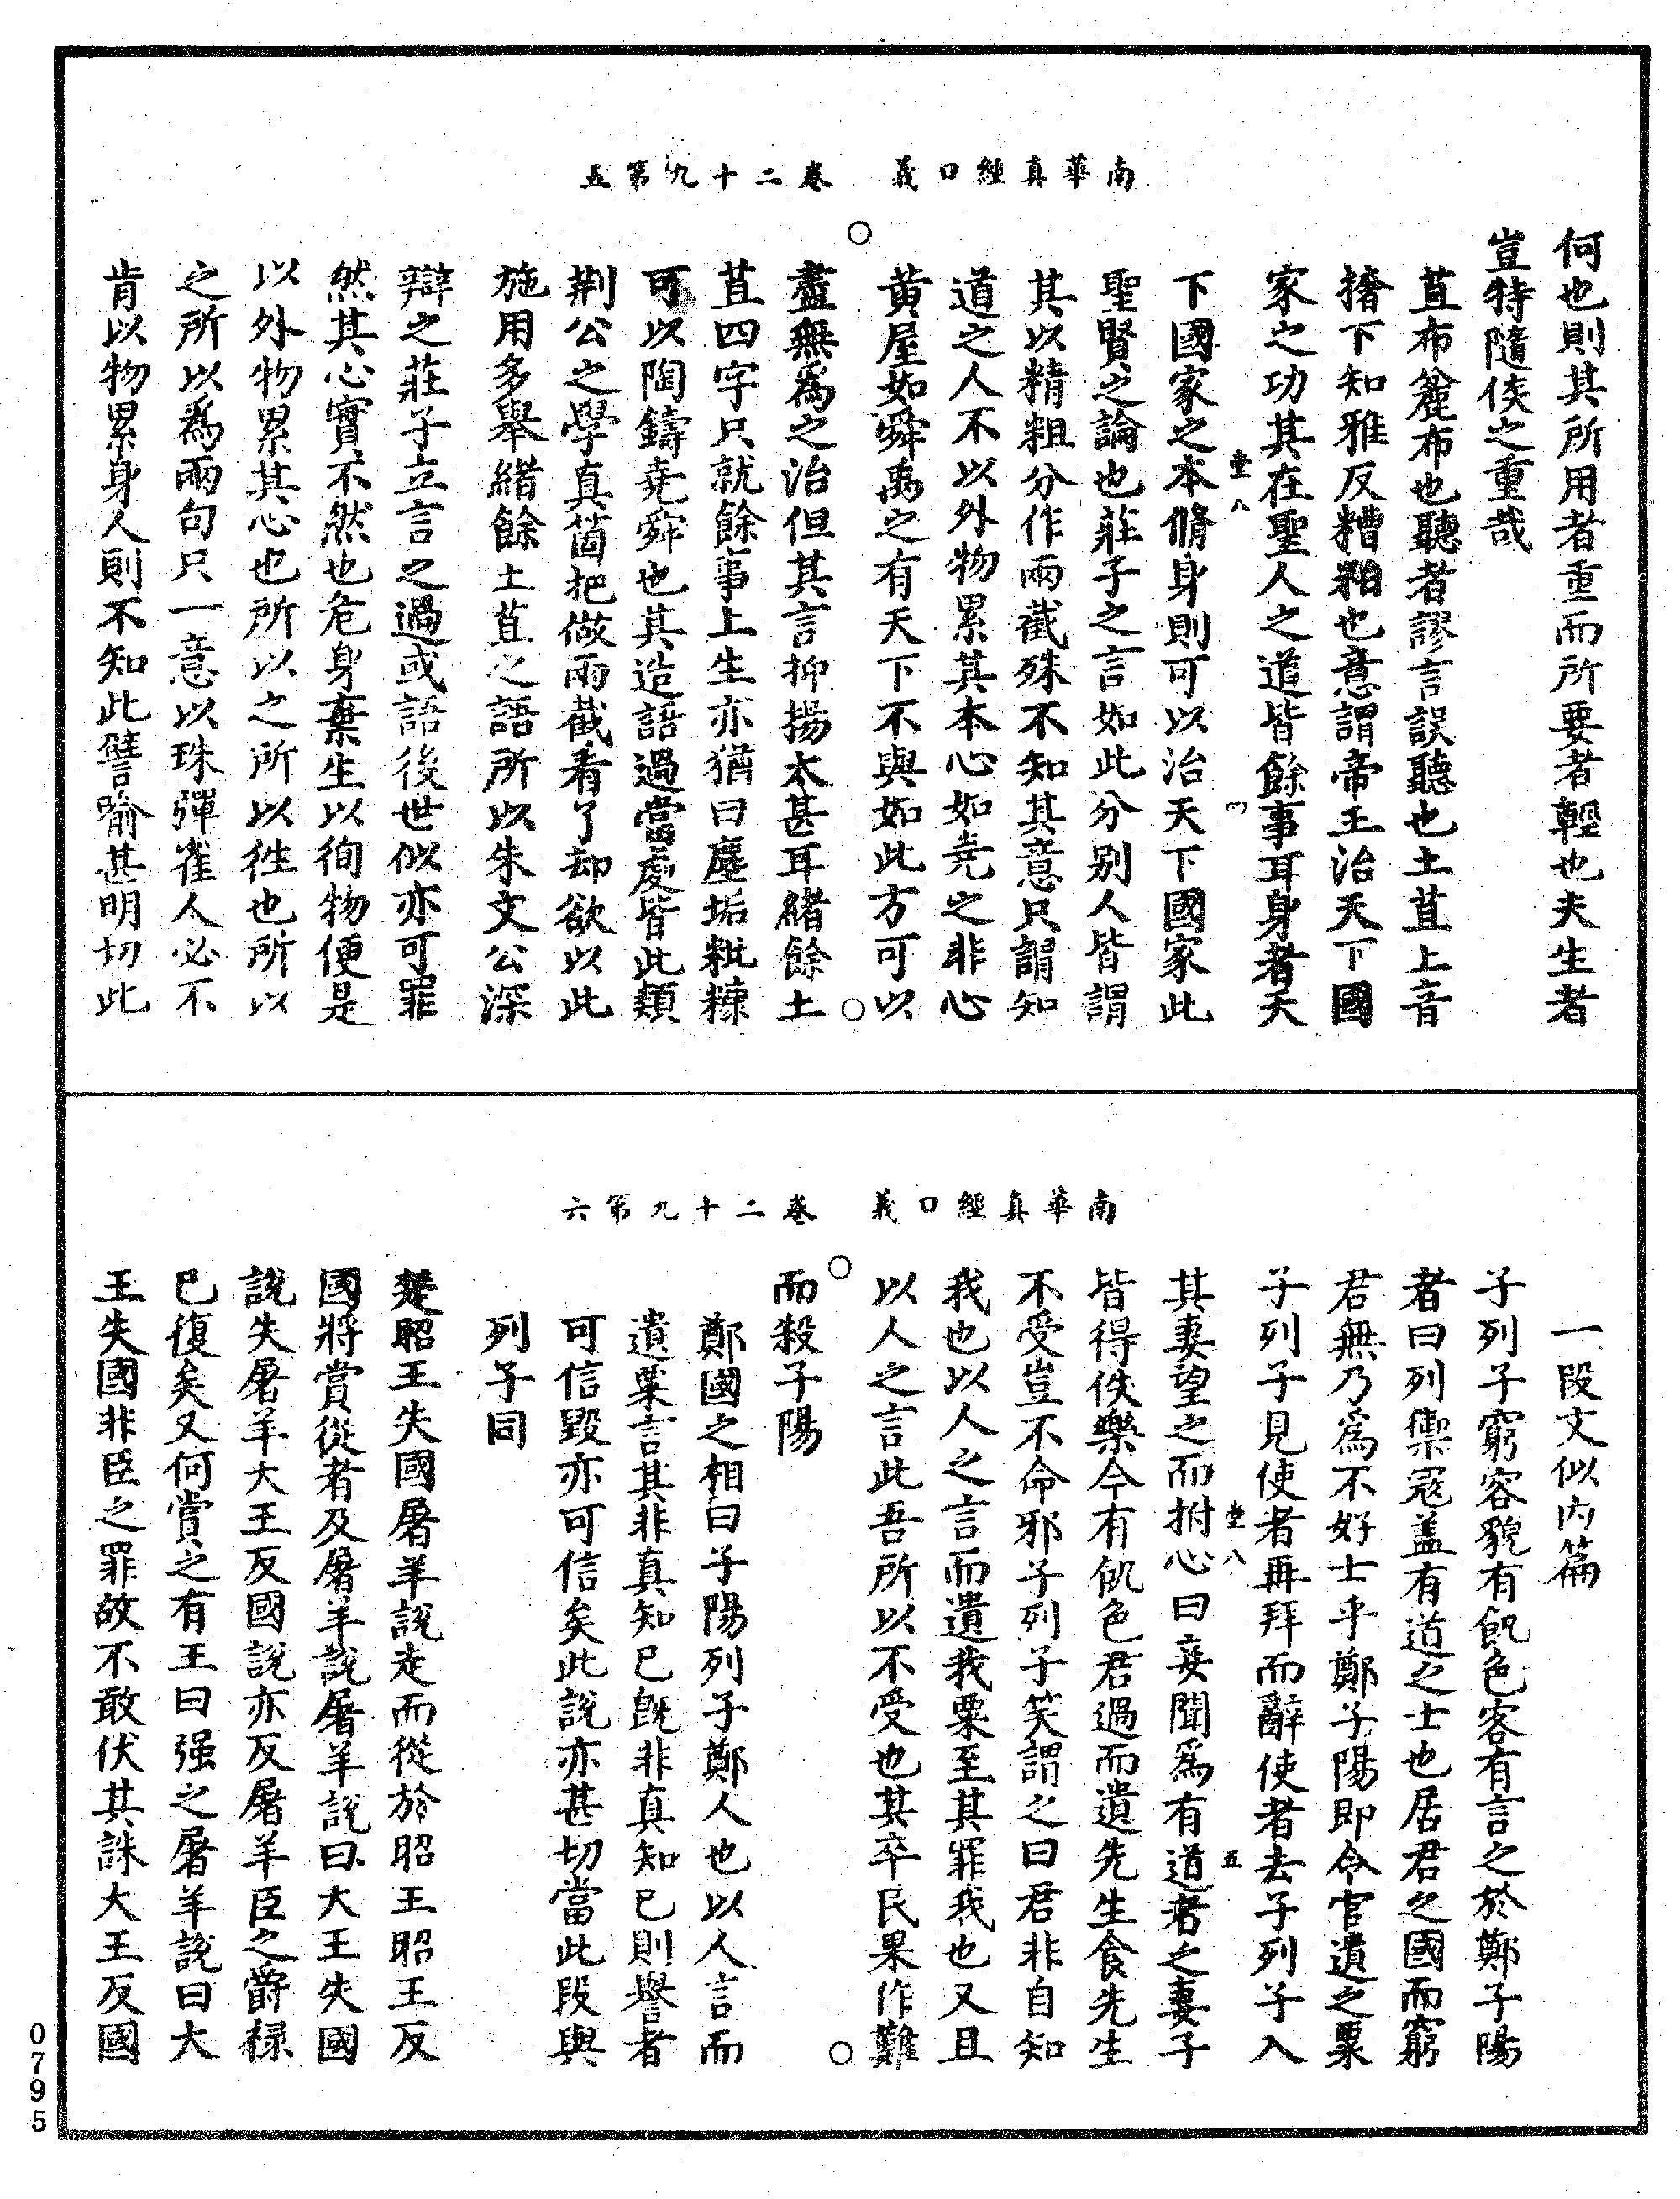 南華真經口義　卷二十九第五
何也則其所用者重而所要者輕也夫生者
豈特隨侯之重哉
苴布麄布也聽者謬言誤聽也土苴上音
撦下知雅反糟粕也意謂帝王治天下國
家之功其在聖人之道皆餘事耳身者天
壹八　四
下國家之本脩身則可以治天下國家此
聖賢之論也莊子之言如此分别人皆謂
其以精粗分作兩截殊不知其意只謂知
道之人不以外物累其本心如堯之非心
黃屋如舜禹之有天下不與如此方可以
盡無爲之治但其言抑揚太甚耳緒餘土
苴四字只就餘事上生亦猶曰塵垢粃糠
可以陶鑄堯舜也其造語過當處皆此類
荆公之學真箇把做兩截看了却欲以此
施用多舉緒餘土苴之語所以朱文公深
辯之莊子立言之過或語後世似亦可罪
然其心實不然也危身棄生以徇物便是
以外物累其心也所以之所以徃也所以
之所以爲兩句只一意以珠彈雀人必不
肯以物累身人則不知此譬喻甚明切此
南華真經口義　卷二十九第六
一段文似内篇
子列子窮容貌有飢色客有言之於鄭子陽
者曰列禦寇盖有道之士也居君之國而窮
君無乃爲不好士乎鄭子陽即令官遺之粟
子列子見使者再拜而辭使者去子列子入
壹八　五
其妻望之而拊心曰妾聞爲有道者之妻子
皆得佚樂今有飢色君過而遺先生食先生
不受豈不命邪子列子笑謂之曰君非自知
我也以人之言而遺我粟至其罪我也又且
以人之言此吾所以不受也其卒民果作難
而殺子陽
鄭國之相曰子陽列子鄭人也以人言而
遺粟言其非真知已既非真知已則譽者
可信毀亦可信矣此說亦甚切當此段與
列子同
楚昭王失國屠羊說走而從於昭王昭王反
國將賞從者及屠羊說屠羊說曰大王失國
說失屠羊大王反國說亦反屠羊臣之爵禄
已復矣又何賞之有王曰强之屠羊說曰大
王失國非臣之罪故不敢伏其誅大王反國
0795